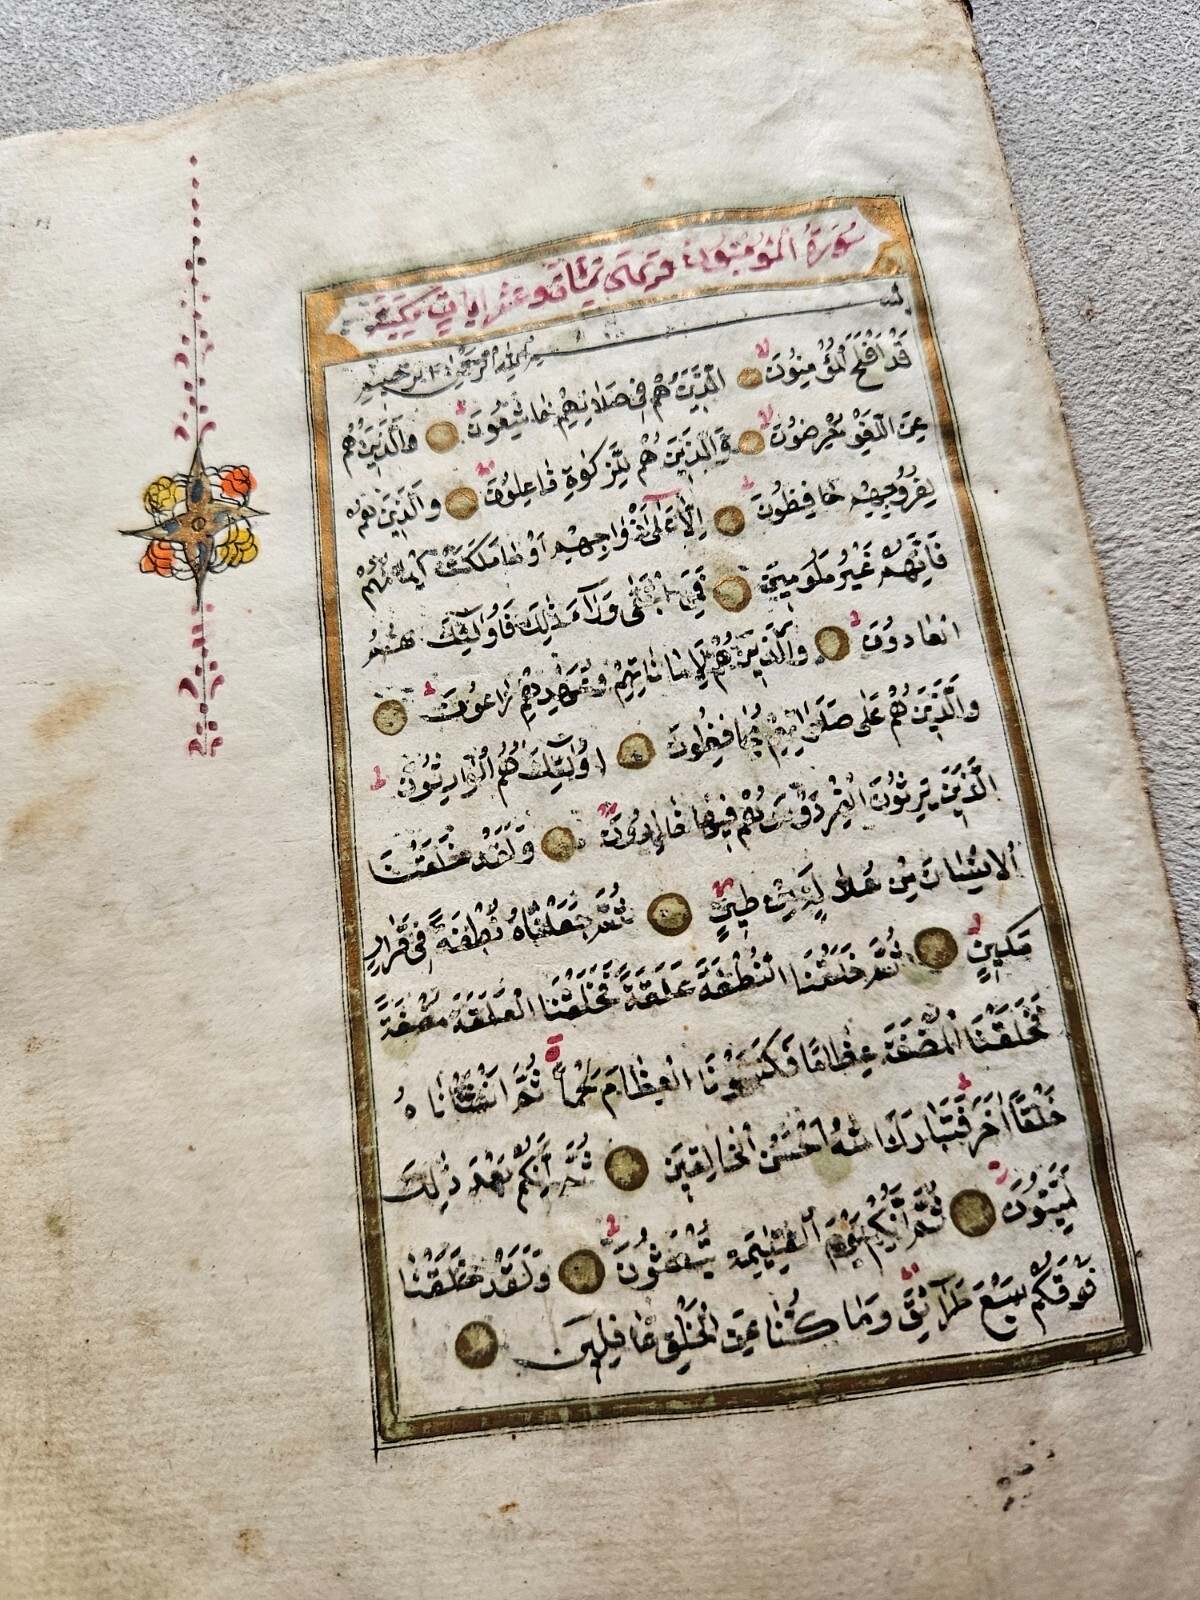 سُورَةُ الْمُؤْمِنُونَ وَهِيَ مِائَة وَ عشر ايات مَكِّيَّة
بسم الله الرحمن الرحيم
قَدْ اَفْلَحَ الْمُؤْمِنُونَ لا الَّذِينَ هُمْ فِى صَلَاتِهِمْ خَاشِعُونَ لا وَالَّذِينَ هُمْ
عَنِ اللَّغْوِ مُعْرِضُونَ لا وَالَّذِينَ هُمْ لِلزَّكٰوةِ فَاعِلُونَ لا وَالَّذِينَ هُمْ
لِفُرُوجِهِمْ حَافِظُونَ لا اِلَّا عَلٰى اَزْوَاجِهِمْ اَوْ مَا مَلَكَتْ اَيْمَانُهُمْ
فَاِنَّهُمْ غَيْرُ مَلُومِينَ فَمَنِ ابْتَغٰى وَرَآءَ ذٰلِكَ فَاُولٰئِكَ هُمُ
الْعَادُونَ وَالَّذِينَ هُمْ لِاَمَانَاتِهِمْ وَعَهْدِهِمْ رَاعُونَ لا
وَالَّذِينَ هُمْ عَلٰى صَلَوَاتِهِمْ يُحَافِظُونَ اُولٰئِكَ هُمُ الْوَارِثُونَ لا
الَّذِينَ يَرِثُونَ الْفِرْدَوْسَ هُمْ فِيهَا خَالِدُونَ وَلَقَدْ خَلَقْنَا
الْاِنْسَانَ مِنْ سُلَالَةٍ مِنْ طِينٍ ثُمَّ جَعَلْنَاهُ نُطْفَةً فِى قَرَارٍ
مَكِينٍ ثُمَّ خَلَقْنَا النُّطْفَةَ عَلَقَةً فَخَلَقْنَا الْعَلَقَةَ مُضْغَةً
فَخَلَقْنَا الْمُضْغَةَ عِظَامًا فَكَسَوْنَا الْعِظَامَ لَحْمًا ثُمَّ اَنْشَأْنَاهُ
خَلْقًا اٰخَرَ فَتَبَارَكَ اللهُ اَحْسَنُ الْخَالِقِينَ ثُمَّ اِنَّكُمْ بَعْدَ ذٰلِكَ
لَمَيِّتُونَ ثُمَّ اِنَّكُمْ يَوْمَ الْقِيٰمَةِ تُبْعَثُونَ وَلَقَدْ خَلَقْنَا
فَوْقَكُمْ سَبْعَ طَرَآئِقَ وَمَا كُنَّا عَنِ الْخَلْقِ غَافِلِينَ